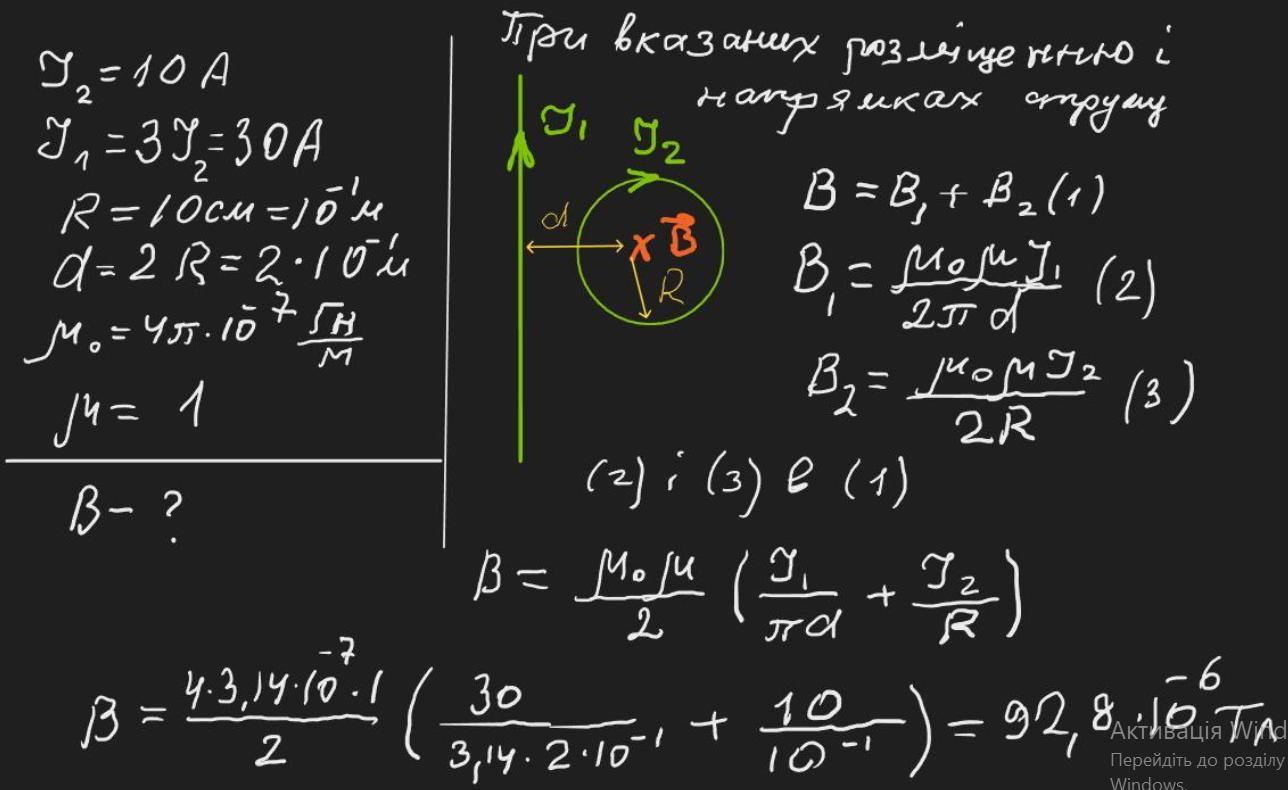 J₂ = 10 А
J₁ = 3J₂ = 30А
R = 10см = 10⁻¹м
d = 2 R = 2·10⁻¹м
μ₀ = 4π·10⁻⁷ Гн/м
μ = 1
B - ?
При вказаних розміщенню і
напрямках струму
J₁
J₂
d
x B⃗
R
B = B₁ + B₂ (1)
B₁ = μ₀μJ₁/2πd (2)
B₂ = μ₀μJ₂/2R (3)
(2) і (3) в (1)
B = μ₀μ/2 (J₁/πd + J₂/R)
B = 4·3,14·10⁻⁷·1/2 (30/3,14·2·10⁻¹ + 10/10⁻¹) = 92,8·10⁻⁶ Тл
Активація Wind
Перейдіть до розділу
Windows.